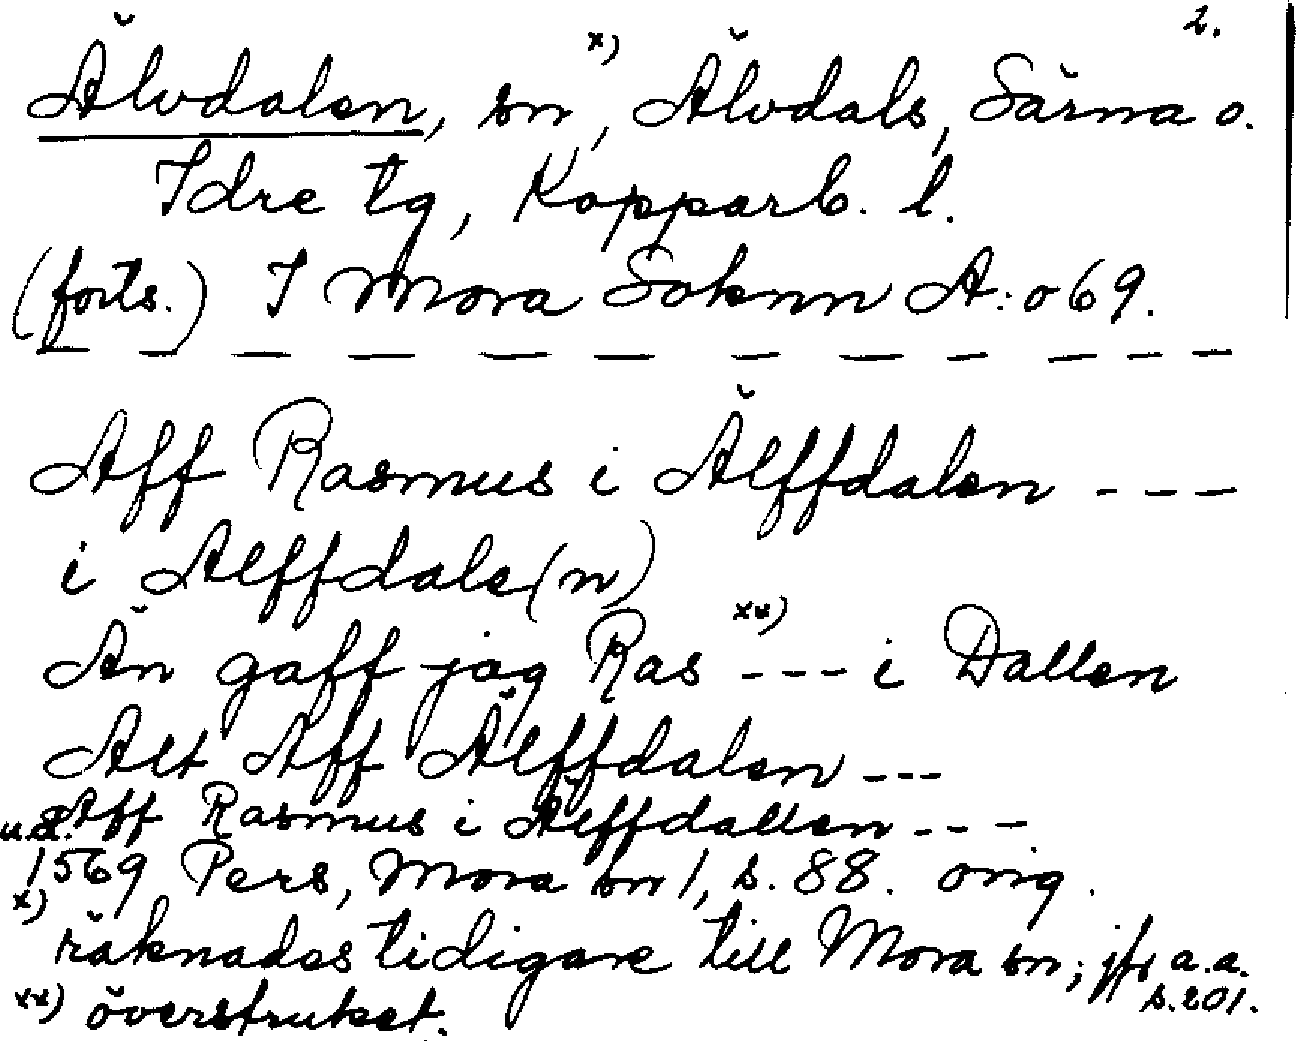 2.
Älvdalen, sn x), Älvdals, Särna o.
Idre tg, Kopparb. l.
(forts.) I Mora Soknn A:o 69.
— — — — — — — — — — — —
Aff Rasmus i Älffdalen - - -
i Alffdale(n)
Än gaff jag Ras xx) - - - i Dallen
Alt Aff Älffdalen - - -
Aff Rasmus i Älffdallen - - -
u.d.
1569 Pers, Mora sn 1, s. 88. orig.
x) räknades tidigare till Mora sn; jfr a.a.
s. 201.
xx) överstruket.